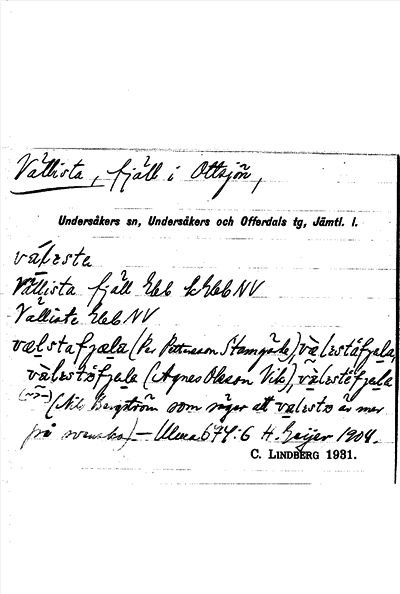 Vällista, fjäll i Ottsjön,
Undersåkers sn, Undersåkers och Offerdals tg, Jämtl. l.
välesta
Vällista fjäll
Välliste
välstafjæla (Per Pettersson Stamgärde), välestöfjæla,
välestöfjæla (Agnes Olsson Vik), välestöfjæla
(Nils Bergström som säger att välestö är mer
på svenska) – Ulma 674:6 H. Geijer 1904.
C. LINDBERG 1931.